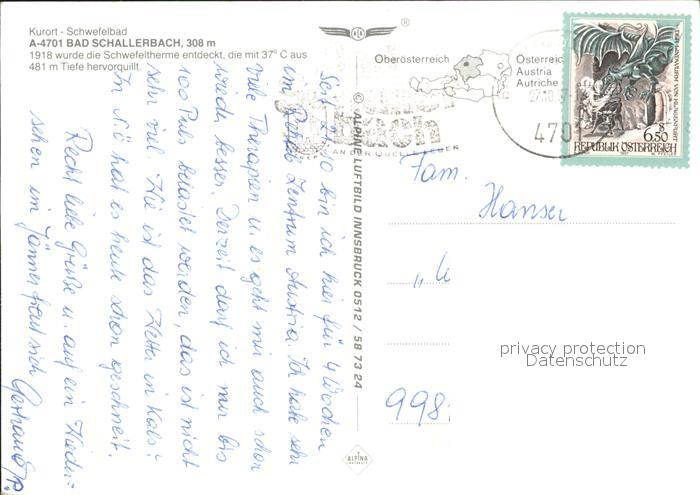 Kurort - Schwefelbad
A-4701 BAD SCHALLERBACH, 308 m
1918 wurde die Schwefeltherme entdeckt, die mit 37° C aus
481 m Tiefe hervorquillt.
Seit so bin ich hier für 4 Wochen
im Reha Zentrum Austria. Ich habe sehr
viele Therapien u. es geht mir auch schon
wieder besser. Derzeit darf ich nur bis
100 Puls belastet werden, das ist nicht
sehr viel. Wie ist das Wetter in Kals?
In NÖ hat es heute schon geschneit.
Recht liebe Grüße u. auf ein Wieder-
sehen im Jänner freut sich
® ALPINE LUFTBILD INNSBRUCK 0512 / 58 73 24
ALPINA
®
Oberösterreich
Österreich
Austria
Autriche
AN DER QUELLE LEBEN
470
6.50
REPUBLIK ÖSTERREICH
Fam.
Hanser
998
privacy protection
Datenschutz